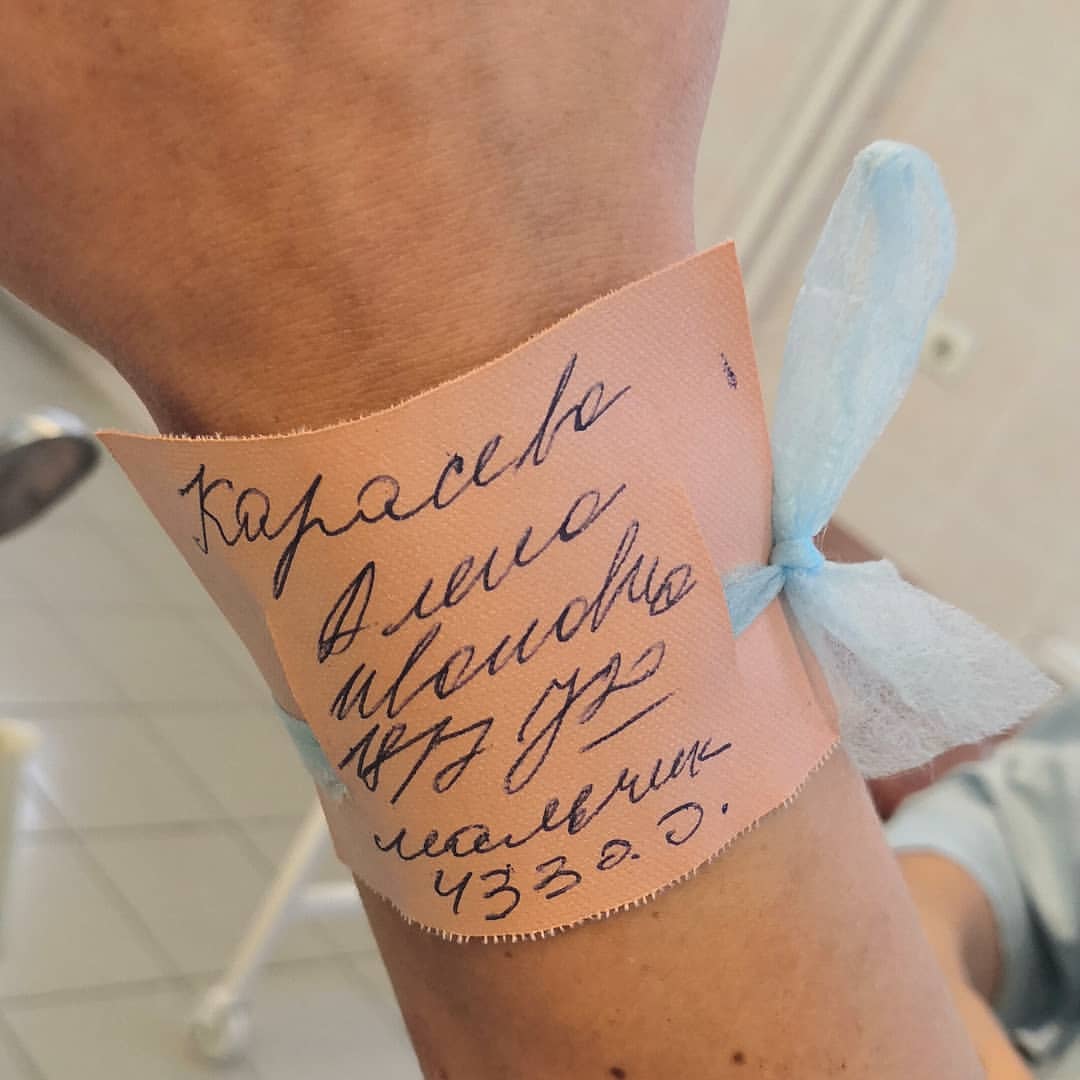 Карасева
Алена
Ивановна
1877
мальчик
433 о.д.